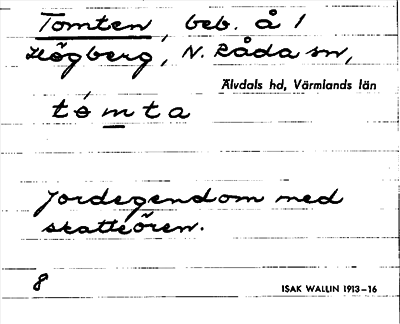 Tomten, beb. å 1
Högberg, N. Råda sn,
Älvdals hd, Värmlands län
tómta
Jordegendom med
skatteören.
8
ISAK WALLIN 1913–16